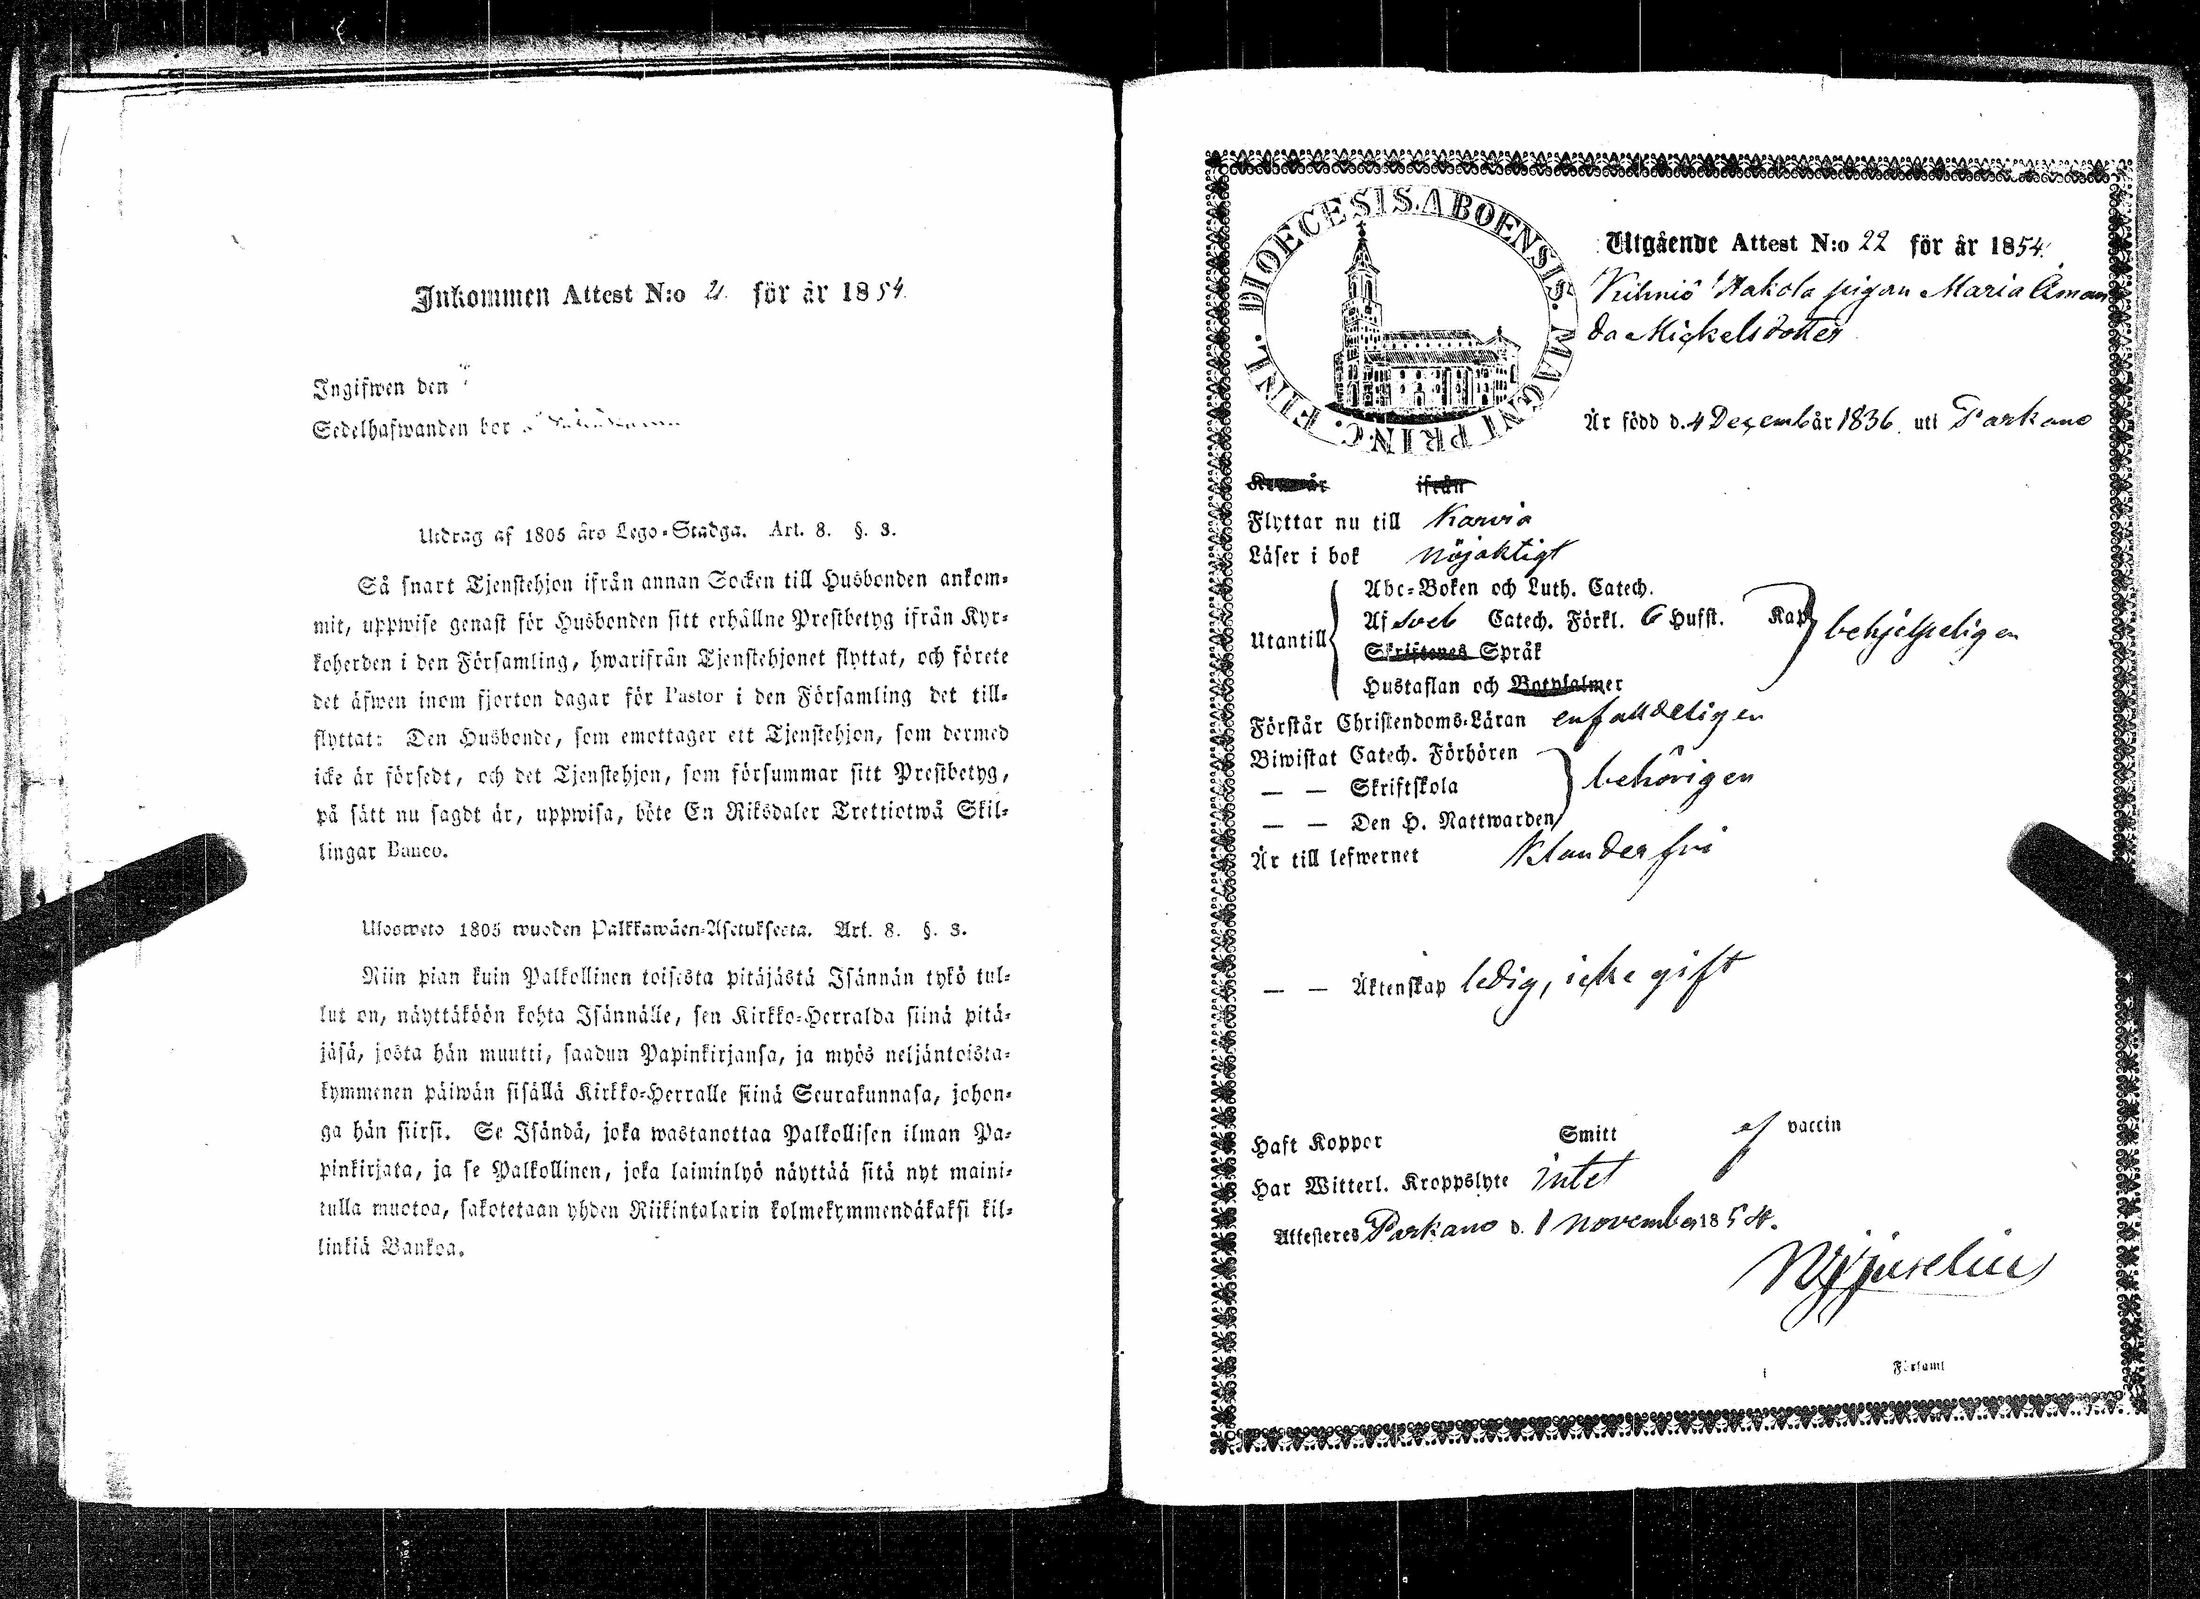 Inkommen Attest N:o 2. för år 1854.
Ingifwen den
Sedelhafwanden bor
Utdrag af 1805 års Lego-Stadga. Art. 8. §. 3.
Så snart Tjenstehjon ifrån annan Socken till Husbonden ankom-
mit, uppwise genast för Husbonden sitt erhållne Prestbetyg ifrån Kyr-
koherden i den Församling, hwarifrån Tjenstehjonet flyttat, och förete
det äfwen inom fjorton dagar för Pastor i den Församling det till-
flyttat: Den Husbonde, som emottager ett Tjenstehjon, som dermed
icke är försedt, och det Tjenstehjon, som försummar sitt Prestbetyg,
på sätt nu sagdt är, uppwisa, böte En Riksdaler Trettiotwå Skil-
lingar Banco.
Ulosweto 1805 wuoden Palkkawäen-Asetuksesta. Art. 8. §. 3.
Niin pian kuin Palkollinen toisesta pitäjästä Isännän tykö tul-
lut on, näyttäköön kohta Isännälle, sen Kirkko-Herralda siinä pitä-
jäsä, josta hän muutti, saadun Papinkirjansa, ja myös neljäntoista-
kymmenen päiwän sisällä Kirkko-Herralle siinä Seurakunnasa, johon-
ga hän siirsi. Se Isändä, joka wastanottaa Palkollisen ilman Pa-
pinkirjata, ja se Palkollinen, joka laiminlyö näyttää sitä nyt maini-
tulla muotoa, sakotetaan yhden Riikintalarin kolmekymmendäkaksi kil-
linkiä Bankoa.
DIOECESIS. ABOENSIS. MAGNI PRINC. FINL.
Utgående Attest N:o 22 för år 1854.
Kihniö Hakola pigan Maria Aman
da Mickelsdotter
Är född d. 4 Decemb år 1836. uti Parkano
ifrån
Flyttar nu till Karvia
Läser i bok nöjaktigt
Abc-Boken och Luth. Catech.
Utantill Af Sveb Catech. Förkl. 6 Hufst. Kap behjelpeligen
Skriftenes Språk
Hustaflan och Botpsalmer
Förstår Christendoms-Läran enfalldeligen
Biwistat Catech. Förhören
— — Skriftskola behörigen
— — Den H. Nattwarden
Är till lefwernet klanderfri
— — Äktenskap ledig, icke gift
Haft Koppor Smitt af vaccin
Har Witterl. Kroppslyte intet
Attesteres Parkano d. 1 november 1854.
Församl